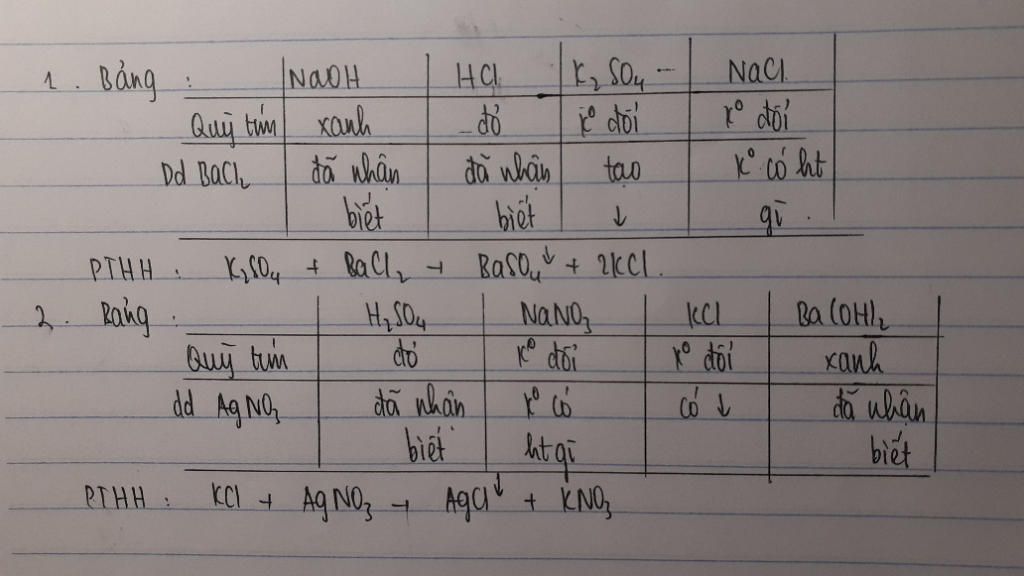 1. Bảng : NaOH HCl K₂SO₄ NaCl
Quỳ tím xanh đỏ K⁰ đổi K⁰ đổi
Dd BaCl₂ đã nhận đã nhận tạo K⁰ có ht
biết biết ↓ gì.
PTHH : K₂SO₄ + BaCl₂ → BaSO₄↓ + 2KCl.
2. Bảng : H₂SO₄ NaNO₃ KCl Ba(OH)₂
Quỳ tím đỏ K⁰ đổi K⁰ đổi xanh
dd AgNO₃ đã nhận K⁰ có có ↓ đã nhận
biết ht gì biết
PTHH : KCl + AgNO₃ → AgCl↓ + KNO₃